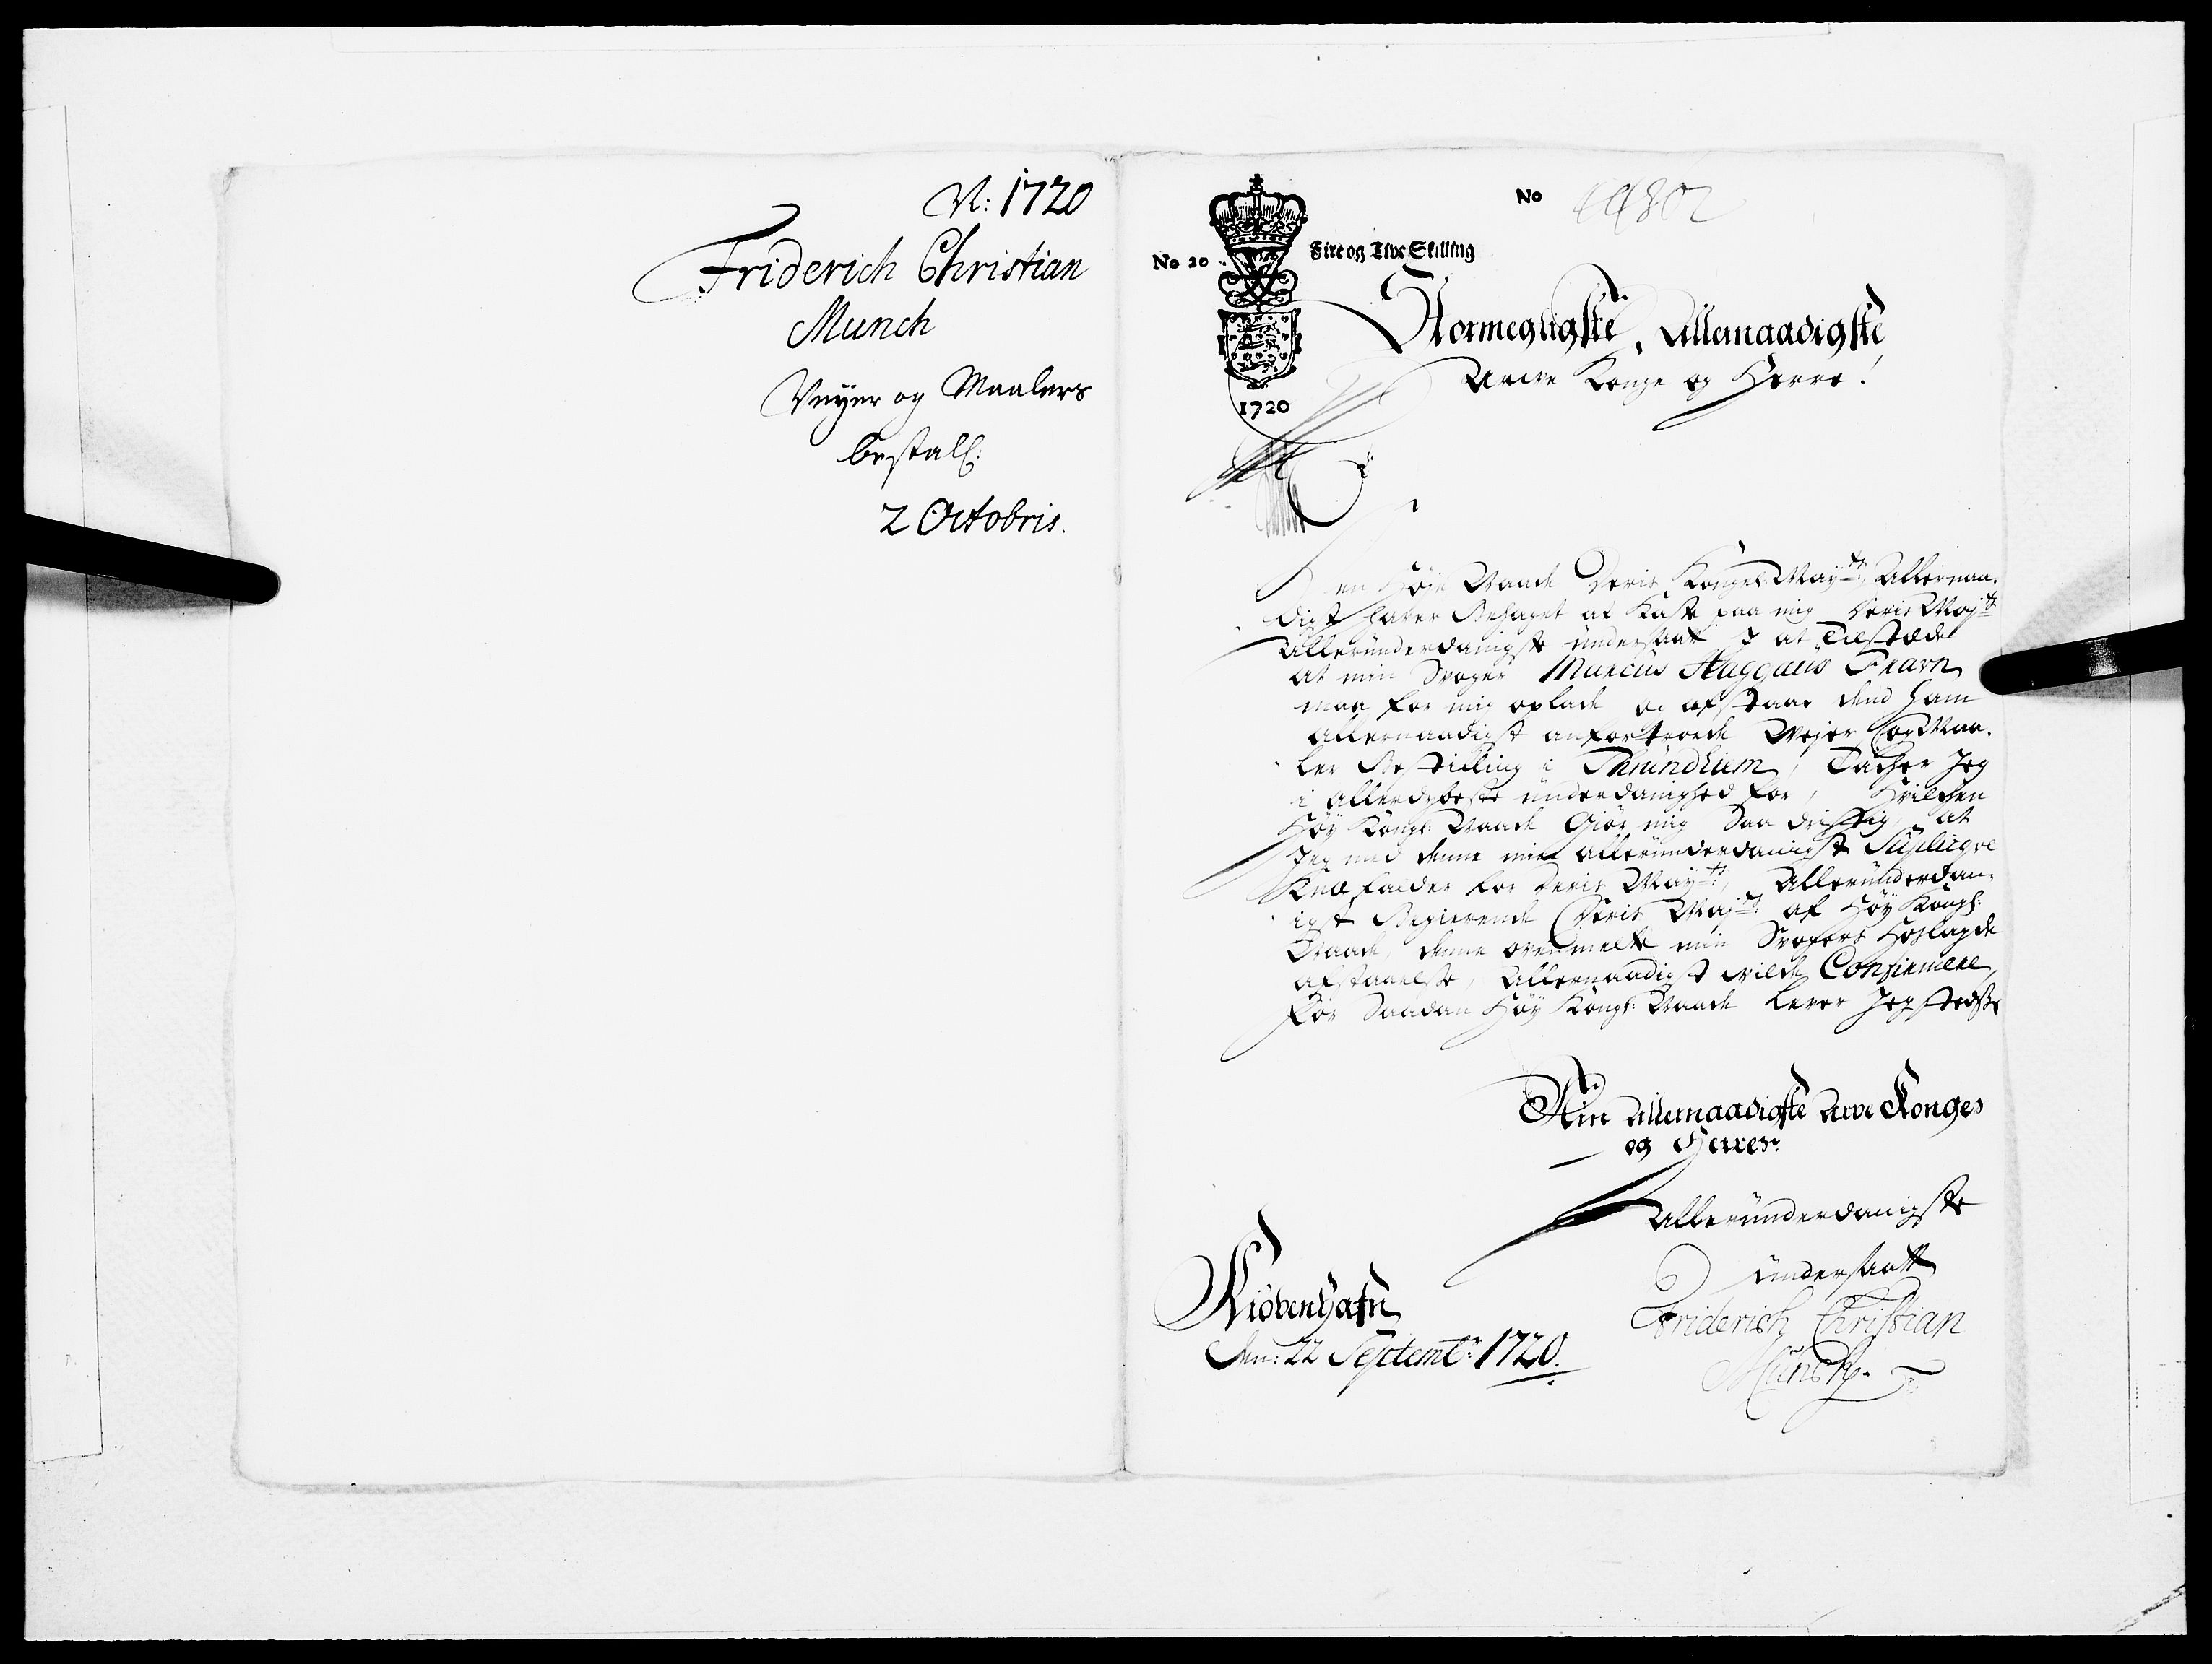 N: 1720
Friderich Christian
Munch
Veyer og Maalers
bestall:
2 Octobris.
No
No 20
Fire og Tive Skilling
1720
Stormegtigste, Allernaadigste
Arve Konge og Herre!
Den Høje Naade Deris Kongel: Mayts: Allernaa-
digst haver Behaget at Kaste paa mig Deris Mayts
Allerunderdanigste undersaatt I at Tilstæde
at min Svoger Marcus Haggæus Fhavn
maa for mig oplade og afstaae dend ham
Allernaadigst anfortroede Vejer og Maa-
ler Bestilling i Thrundhiem, Tacher Jeg
i allerdybeste underdanighed for, Hvilchen
Høy Kongl: Naade Giør mig Saa dristig, at
Jeg med denne min allerunderdanigst Supliqve
Knæfalder for Deris Mayts:, Allerunderdan-
igst Begierende Deris Mayts: af Høy Kongl:
Naade, denne ovenmelte min Svogers Hoslagde
afstaaelse, Allernaadigst vilde Confirmere,
For Saadan Høy Kongl: Naade lever Jeg stedtze
Min Allernaadigste Arve Konges
og Herres
Allerunderdanigste
undersaatt
Friderich Christian
Munch.
Kiøbenhafn
Den: 22 Septembr: 1720.